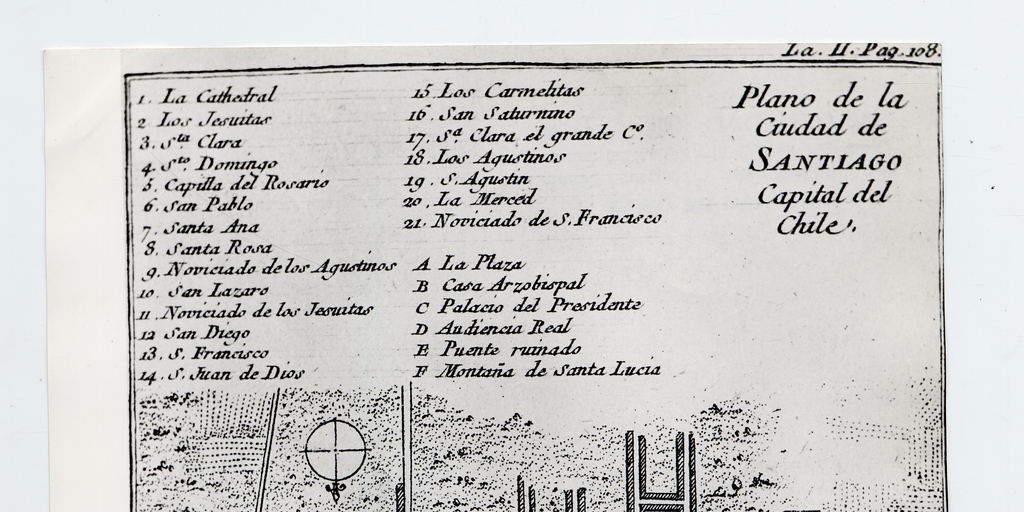 La. II. Pag. 108.
1. La Cathedral
2 Los Jesuitas
3. Sta Clara
4. Sto Domingo
5. Capilla del Rosario
6. San Pablo
7. Santa Ana
8. Santa Rosa
9. Noviciado de los Agustinos
10. San Lazaro
11. Noviciado de los Jesuitas
12 San Diego
13. S. Francisco
14. S. Juan de Dios
15. Los Carmelitas
16. San Saturnino
17. Sa. Clara el grande Co.
18. Los Agustinos
19. S. Agustin
20. La Merced
21. Noviciado de S. Francisco
A La Plaza
B Casa Arzobispal
C Palacio del Presidente
D Audiencia Real
E Puente ruinado
F Montaña de Santa Lucia
Plano de la
Ciudad de
SANTIAGO
Capital del
Chile.